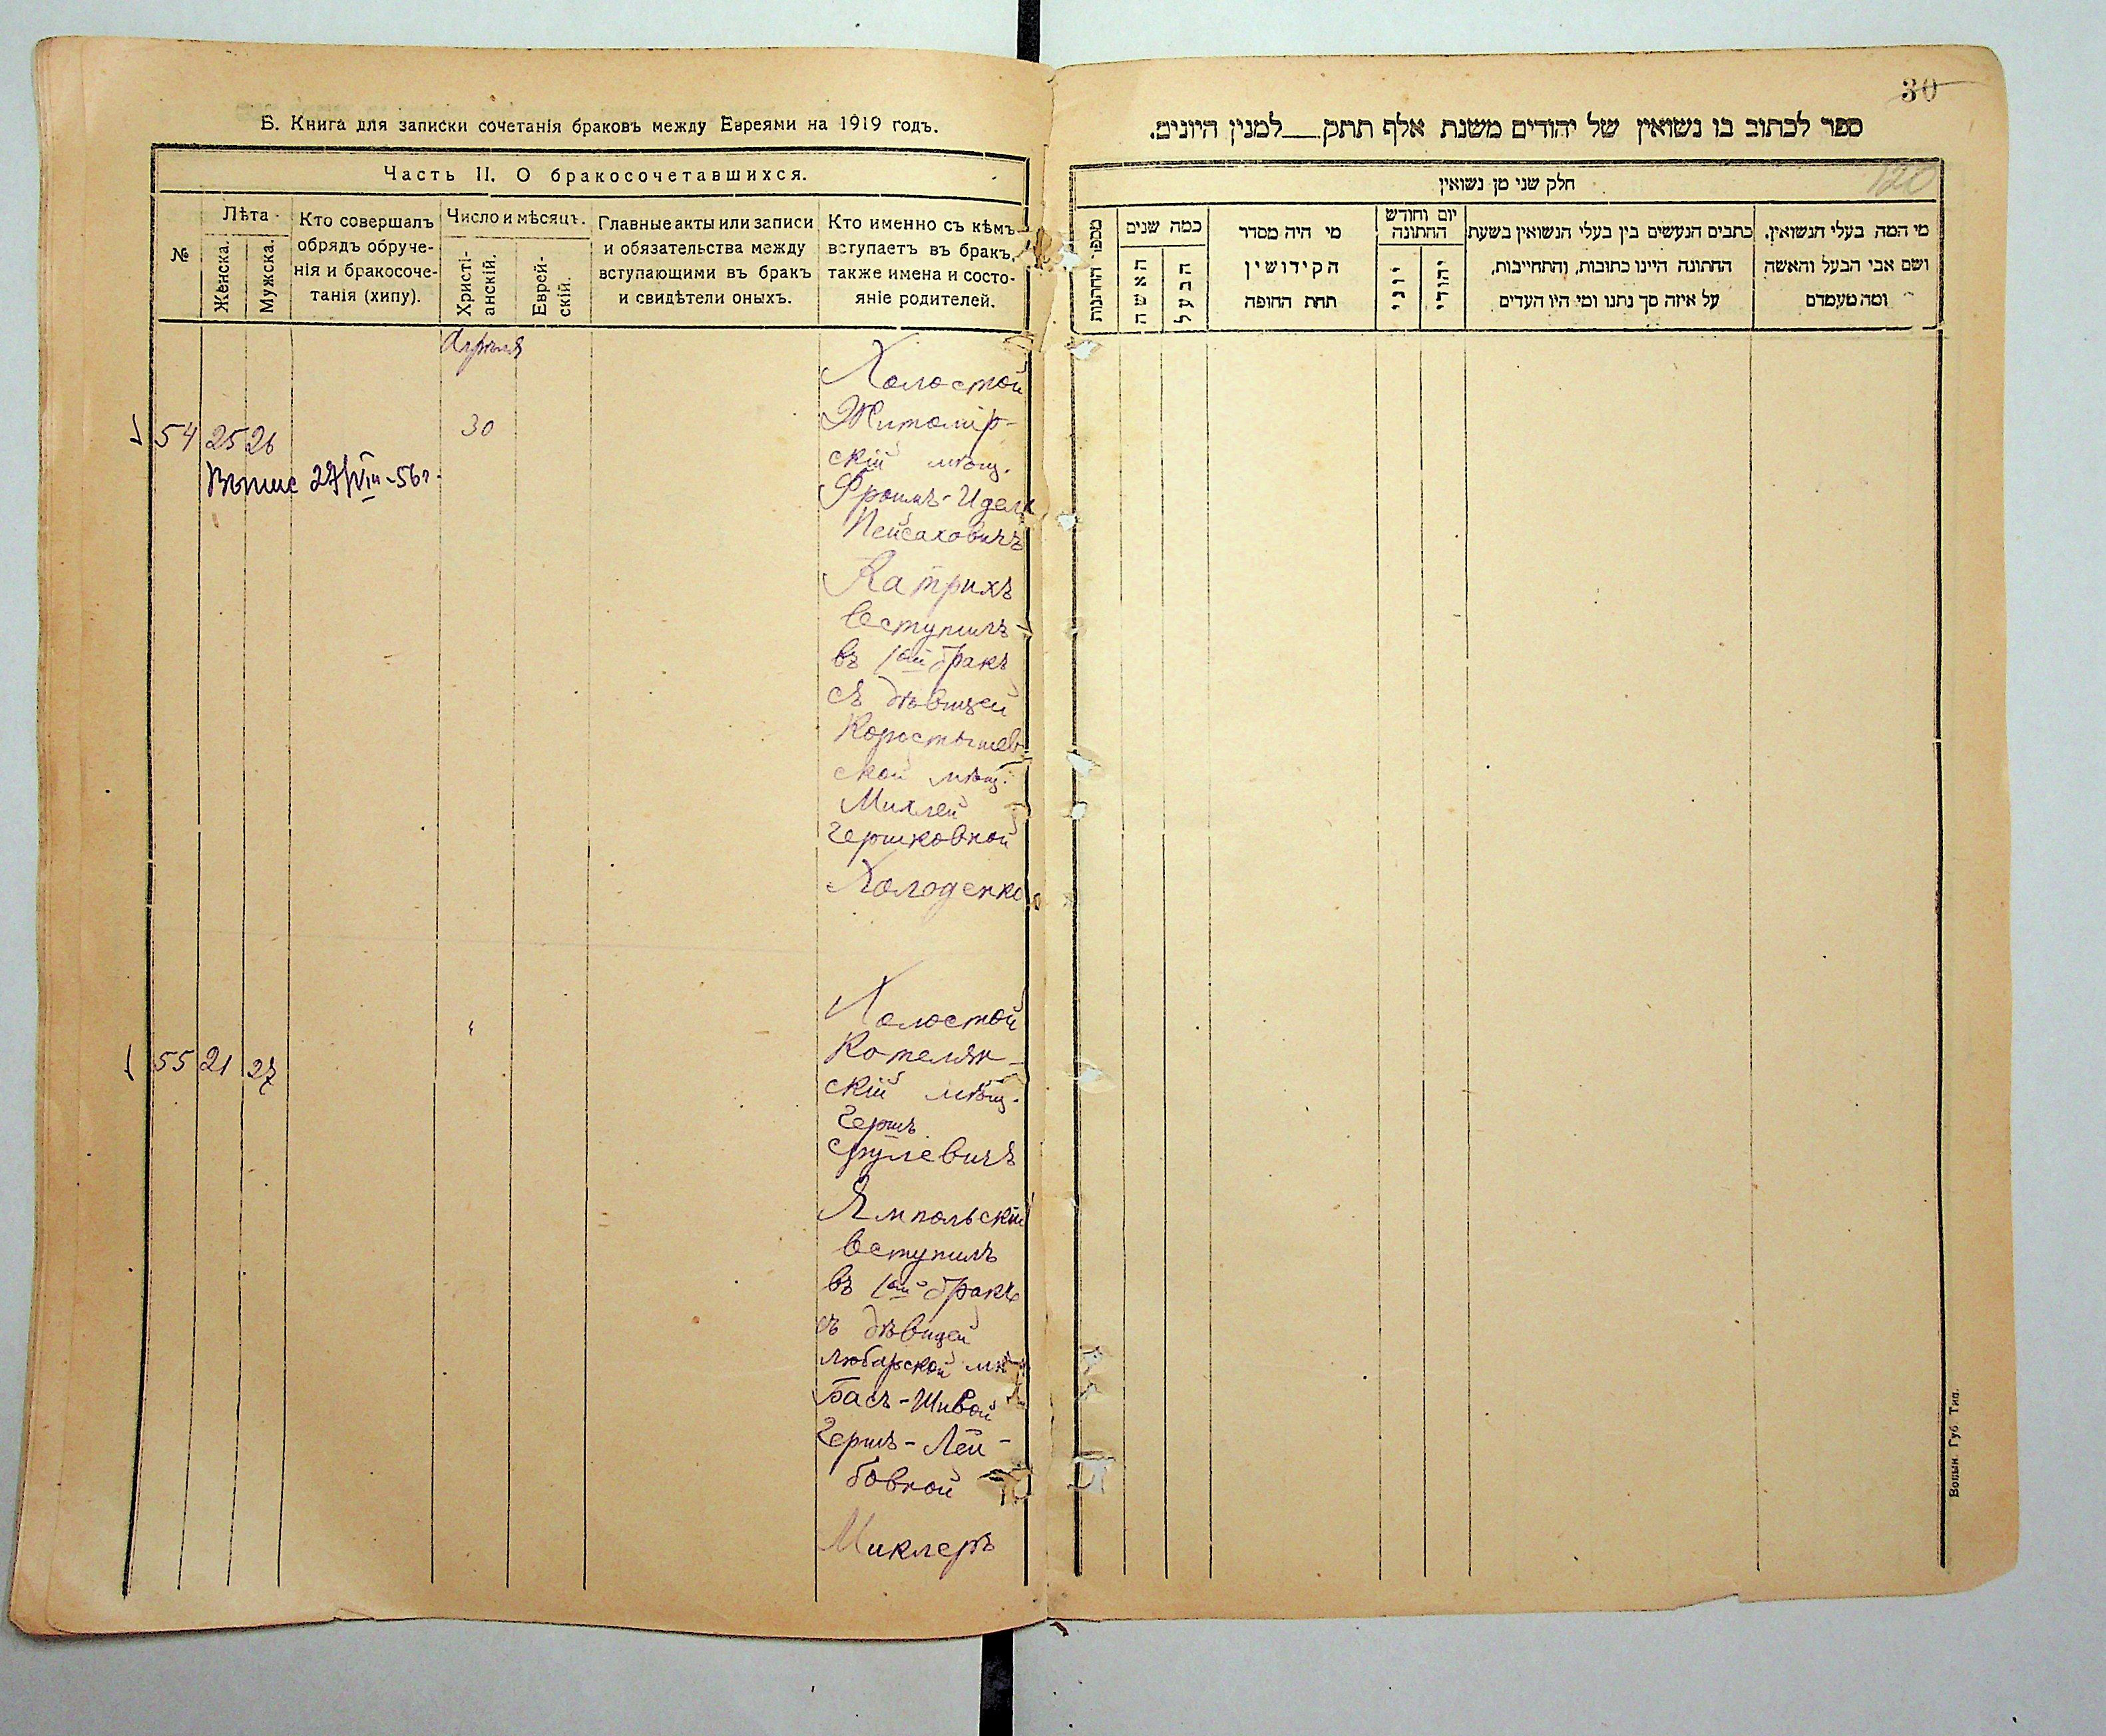 Б. Книга для записки сочетанія браковъ между Евреями на 1919 годъ.
Часть II. О бракосочетавшихся.
№
Лѣта
Женска.
Мужска.
Кто совершалъ
обрядъ обруче-
нія и бракосоче-
танія (хипу).
Число и мѣсяцъ.
Христі-
анскій.
Еврей-
скій.
Главные акты или записи
и обязательства между
вступающими въ бракъ
и свидѣтели оныхъ.
Кто именно съ кѣмъ
вступаетъ въ бракъ,
также имена и состо-
яніе родителей.
Апрѣля
54 25 26 30
27/VIII-56г.
Холостой
Житомір-
скій мѣщ.
Фроимъ-Идель
Пейсаховичъ
Катрихъ
вступилъ
въ 1ый бракъ
съ дѣвицей
Коростышев-
ской мѣщ.
Михлей
Гершковной
Холоденко
55 21 27 "
Холостой
Котельян-
скій мѣщ.
Гершъ
Срулевичъ
Ямпольскій
вступилъ
въ 1ый бракъ
съ дѣвицей
Любарской мѣ
Бась-Шивой
Гершъ-Лей-
бовной
Миклеръ
30
ספר לכתוב בו נשואין של יהודים משנת אלף תתק__למנין היונים.
120
חלק שני מן נשואין
מי המה בעלי הנשואין,
ושם אבי הבעל והאשה
ומה מעמדם
כתבים הנעשים בין בעלי הנשואין בשעת
החתונה היינו כתובות, והתחייבות,
על איזה סך נתנו ומי היו העדים
יום וחודש
החתונה
יהודי
יוני
מי היה מסדר
הקידושין
תחת החופה
כמה שנים
הבעל
האשה
מספר החתנות
Волын. Губ. Тип.